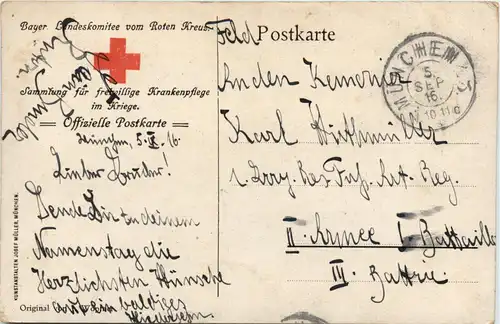 Bayer. Landeskomitee vom Roten Kreuz.
Sammlung für freiwillige Krankenpflege
im Kriege.
Offizielle Postkarte
München, 5. IX. 16
Lieber Bruder!
Sende Dir zu deinem
Namenstag die
Herzlichsten Wünsche
auf ein baldiges
Wiedersehn.
Original
KUNSTANSTALTEN JOSEF MÜLLER, MÜNCHEN.
Feld Postkarte
MÜNCHEN
5.
SEP
16.
An den Kanonier
Karl
1. Res. Reg.
II. Armee 1. Bataill
III. Battrie.